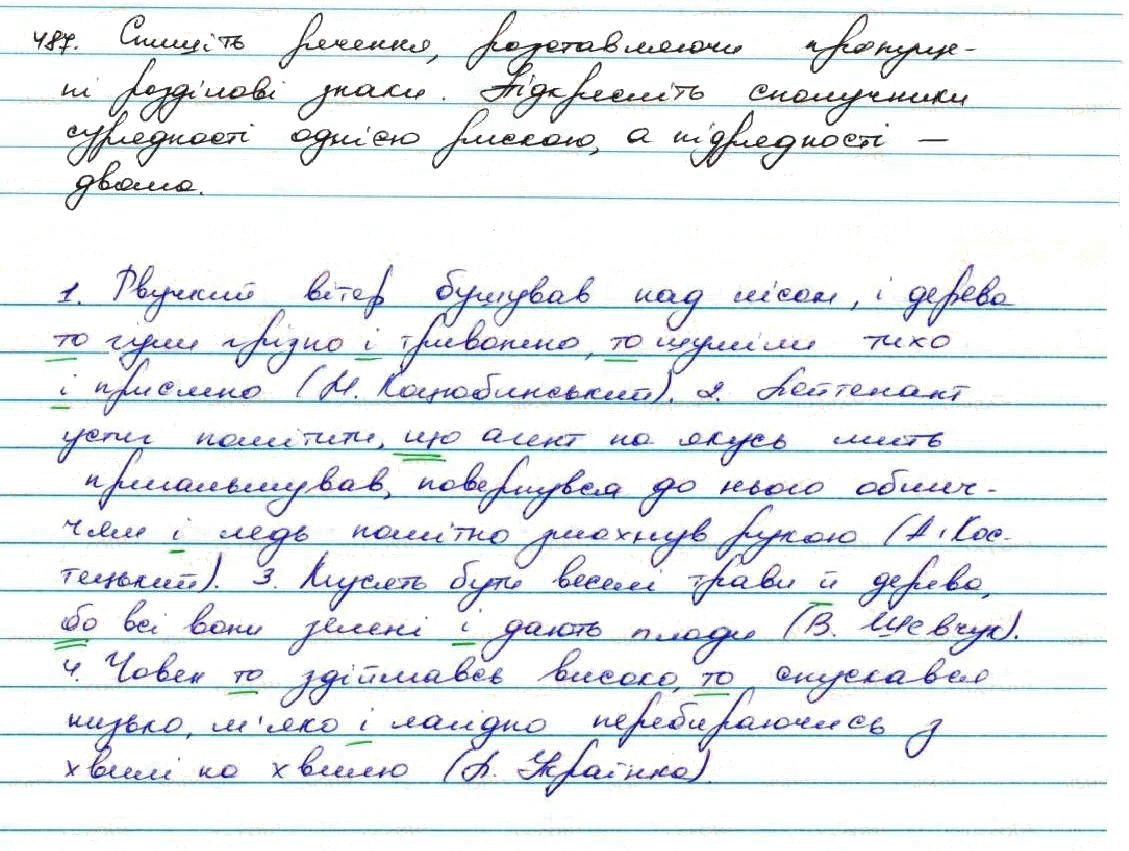 487. Спишіть речення, розставляючи пропуще-
ні розділові знаки. Підкресліть сполучники
сурядності однією рискою, а підрядності —
двома.
1. Рвучкий вітер бушував над лісом, і дерева
то гули грізно і тривожно, то шуміли тихо
і приємно (М. Коцюбинський). 2. Лейтенант
устиг помітити, що агент на якусь мить
пригальмував, повернувся до нього облич-
чям і ледь помітно змахнув рукою (А. Кос-
тецький). 3. Мусять бути веселі трави й дерева,
бо всі вони зелені і дають плоди (В. Шевчук).
4. Човен то здіймавсь високо, то спускався
низько, м'яко і лагідно перебираючись з
хвилі на хвилю (Л. Українка)